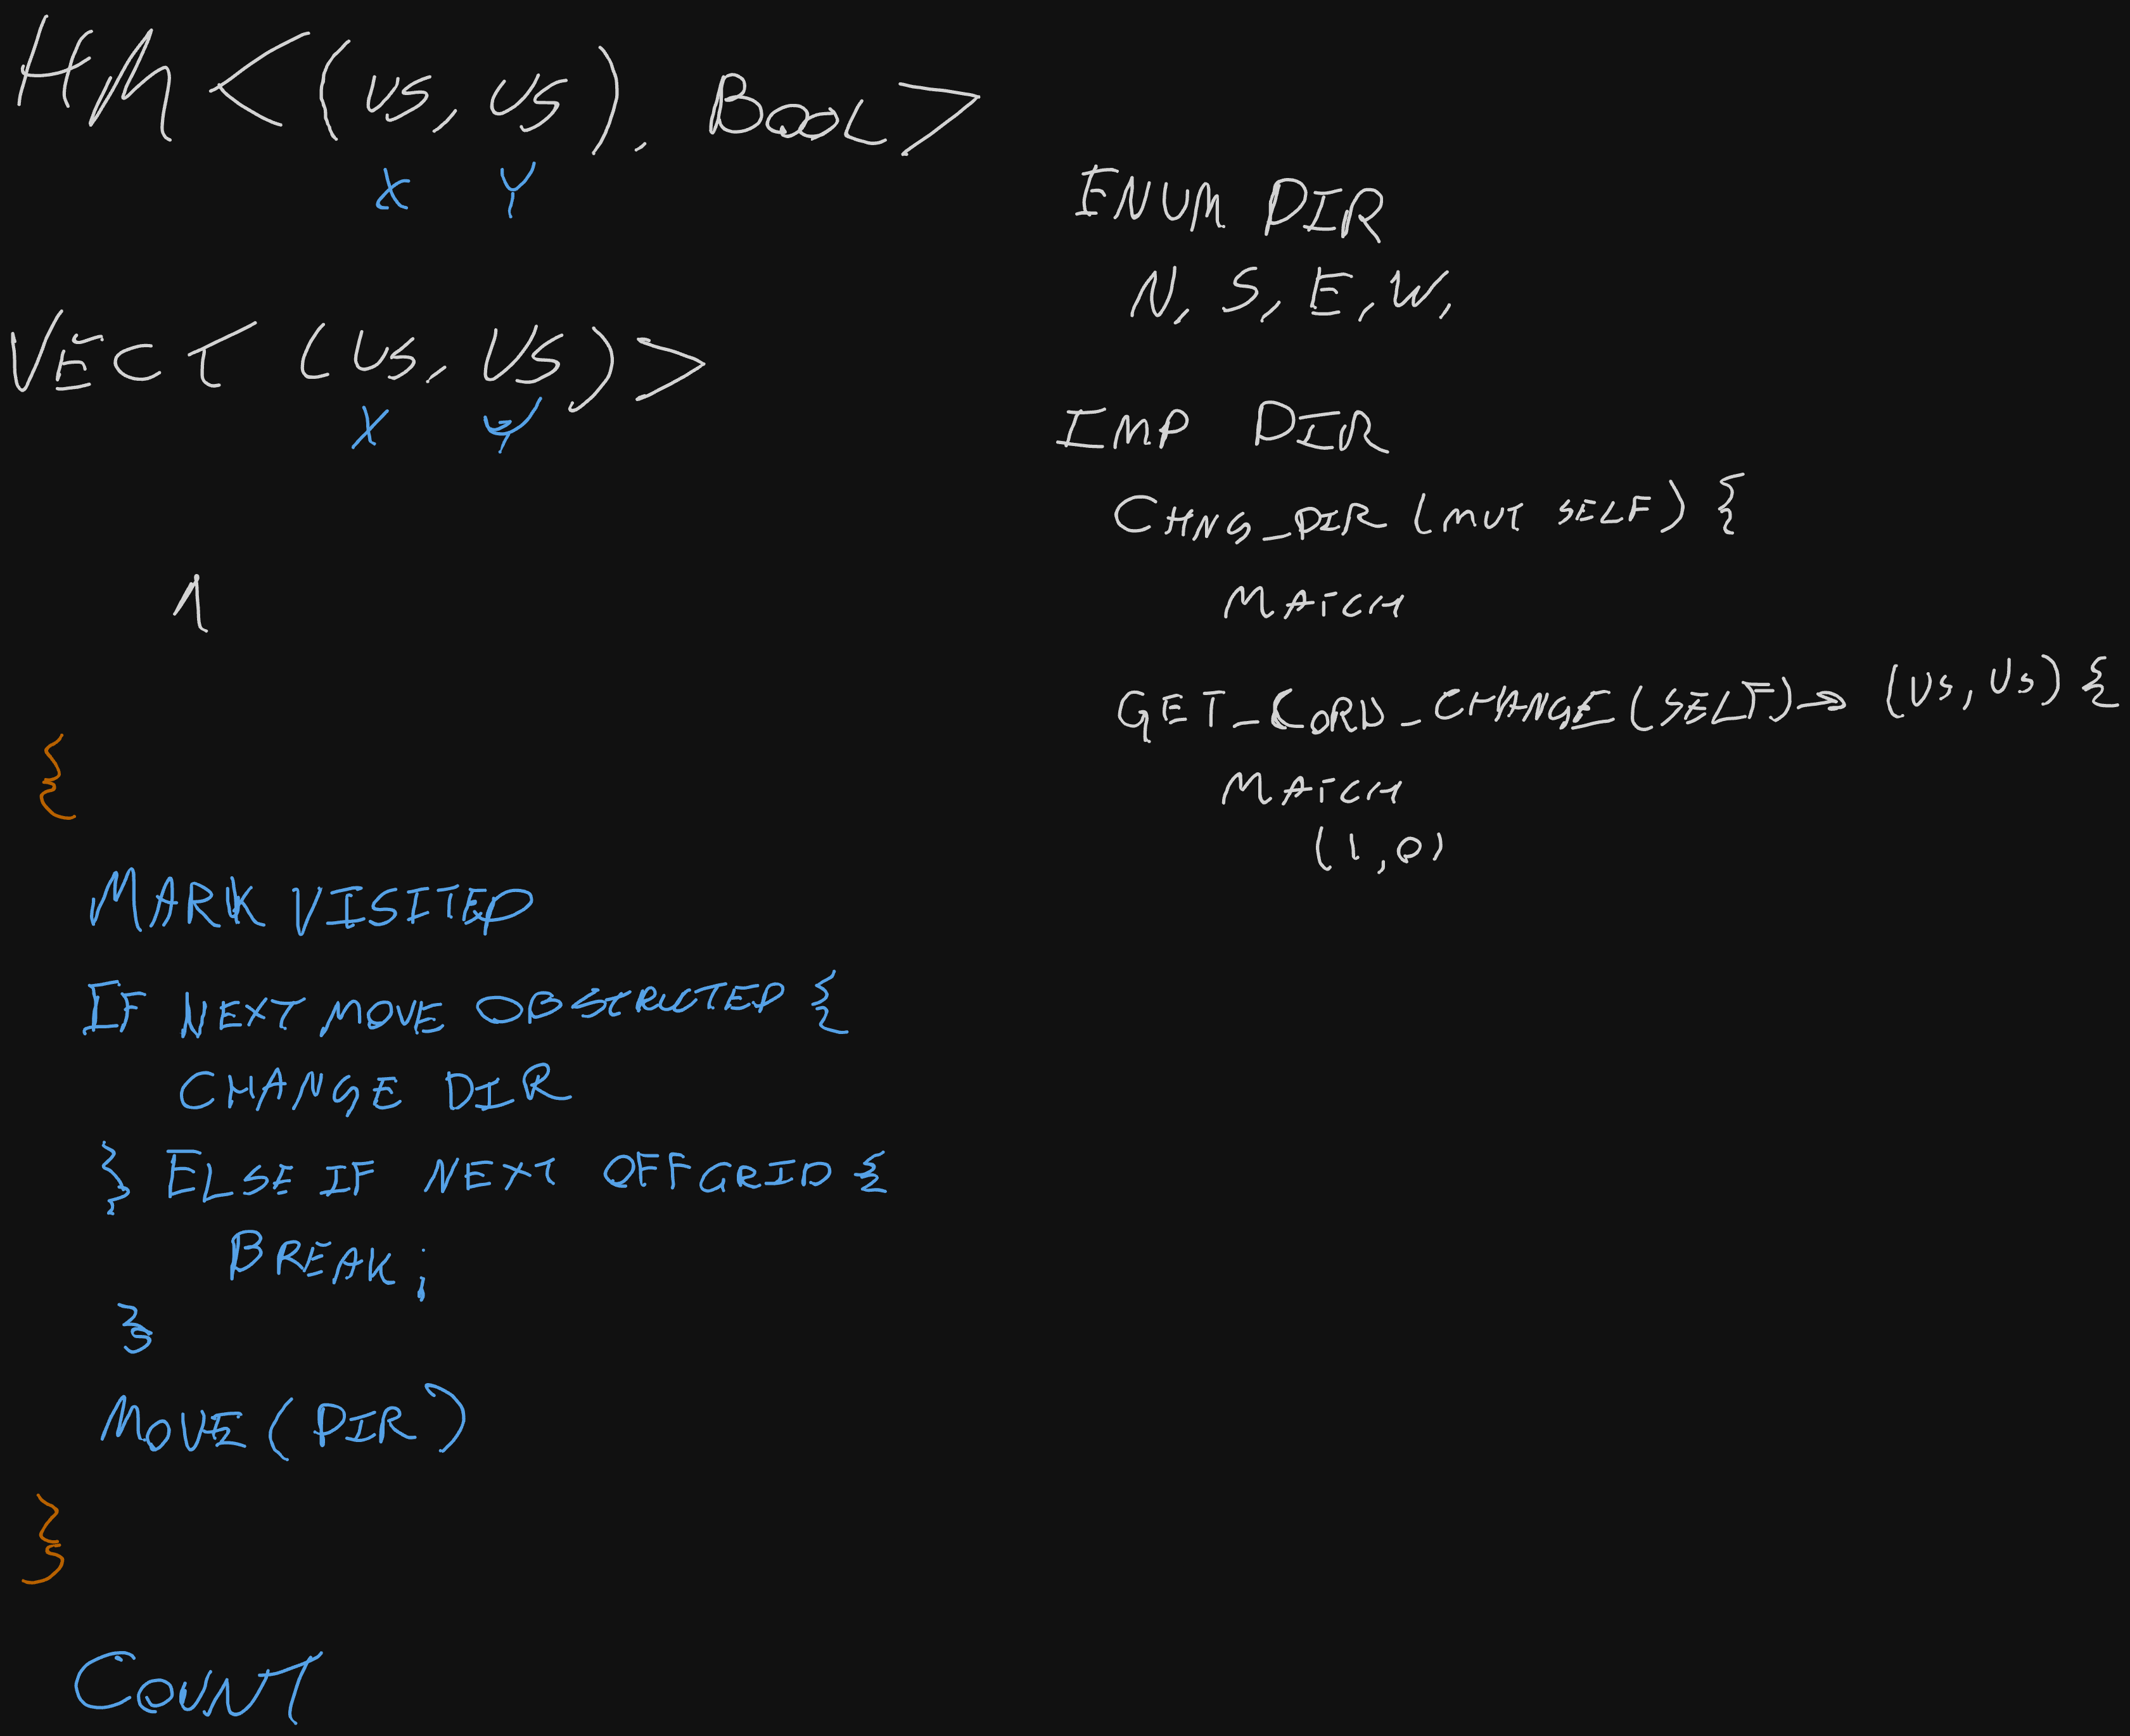 HM<(US, US), BOOL>
X Y
VEC<(US, US)>
X Y
1
{
MARK VISITED
IF NEXT MOVE OBSTRUCTED {
CHANGE DIR
} ELSE IF NEXT OFF GRID {
BREAK;
}
MOVE(DIR)
}
COUNT
ENUM DIR
N, S, E, W,
IMP DIR
CHNG_DIR (MUT SELF) {
MATCH
GET_CORD_CHANGE(SELF)-> (US, US) {
MATCH
(1,0)